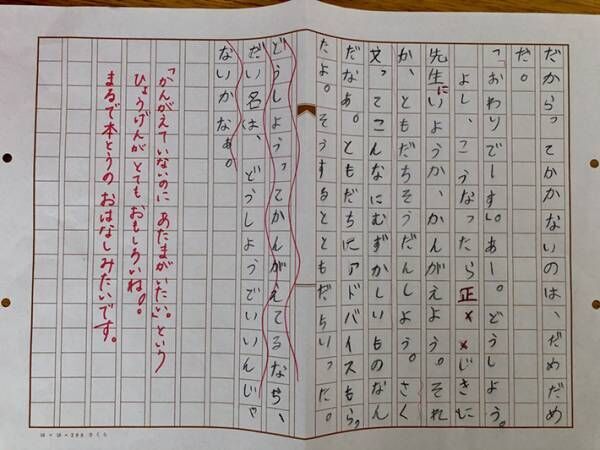 だからってかかないのは、だめだめ
だ。
「おわりでーす。」あー。どうしよう。
よし、こうなったら正××じきに
先生にいようか、かんがえよう。それ
か、ともだちそうだんしよう。さく
文ってこんなにむずかしいものなん
だなあ。ともだちにアドバイスもらっ
たよ。そうするとともだちいった。
どうしようってかんがえてるなら、
だい名は、どうしようでいいんじゃ
ないかなぁ。
「かんがえていないのに あたまがいたい。」という
ひょうげんが とても おもしろいね。
まるで本とうの おはなしみたいです。